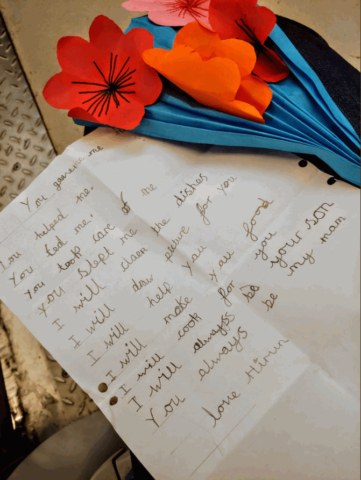 You gave me
You helped me.
You fed me
You took care of me
You slept me
I will clean the dishes
I will daw picture for you
I will help yau
I will make yau food
I will cook for you
I will always be your son
You always be my mam
love